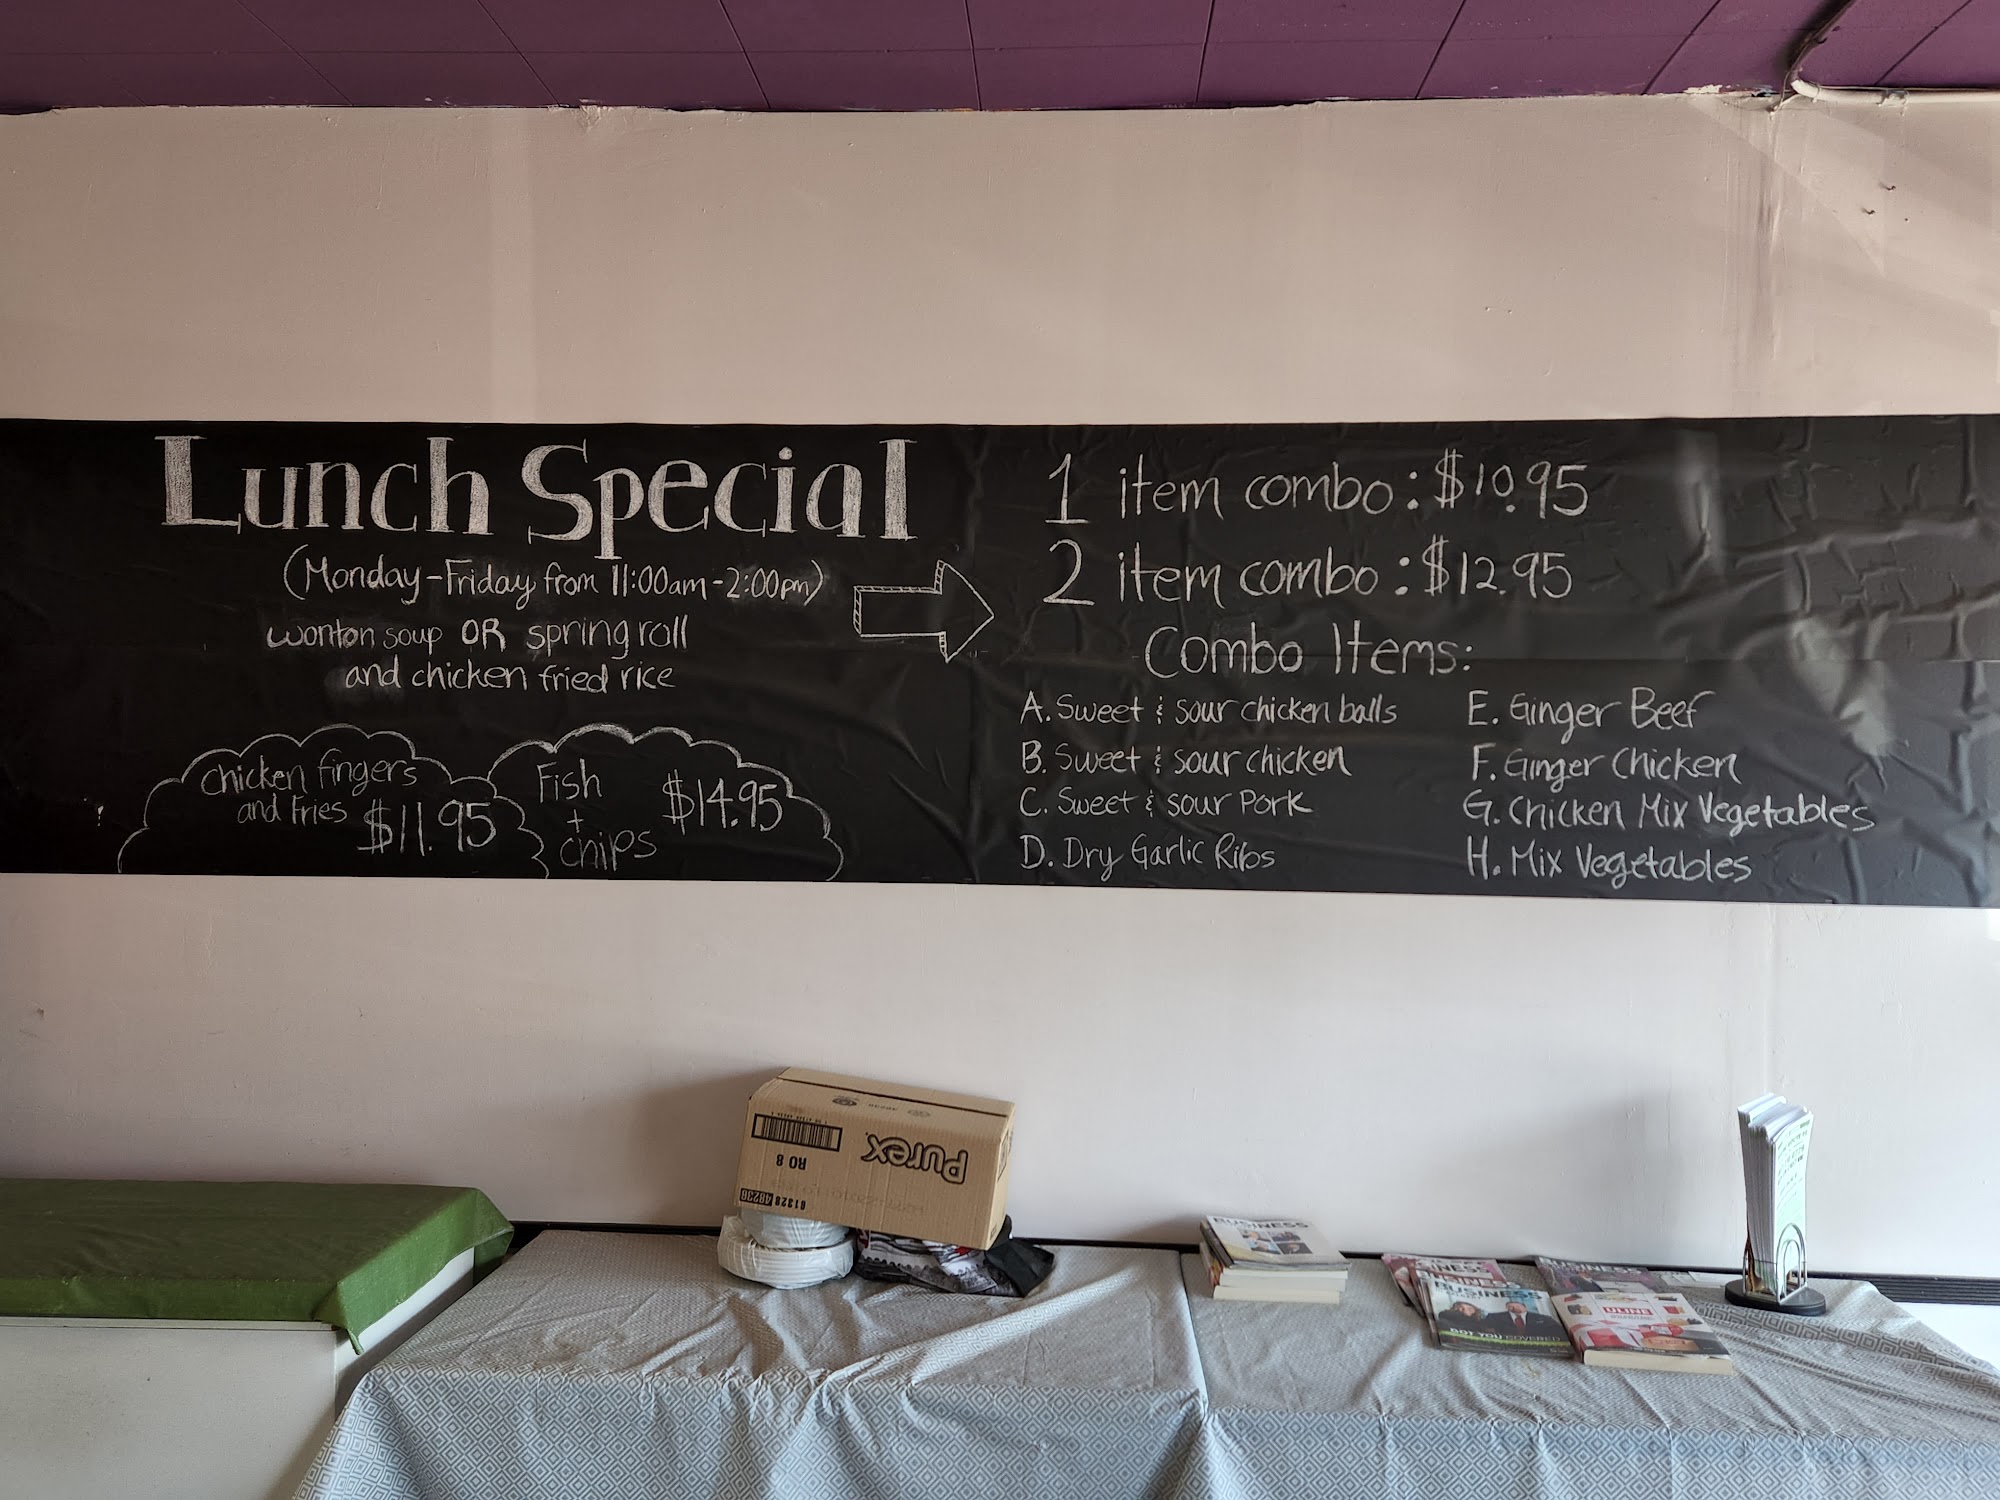 Lunch Special
(Monday-Friday from 11:00am-2:00pm)
wonton soup OR spring roll
and chicken fried rice
chicken fingers
and fries $11.95
Fish
+
chips
$14.95
1 item combo: $10.95
2 item combo: $12.95
Combo Items:
A. Sweet & sour chicken balls
B. Sweet & sour chicken
C. Sweet & sour Pork
D. Dry Garlic Ribs
E. Ginger Beef
F. Ginger Chicken
G. Chicken Mix Vegetables
H. Mix Vegetables
Purex
RO 8
61328 48236
BUSINESS
BUSINESS
BUSINESS
GOT YOU COVERED
ULINE